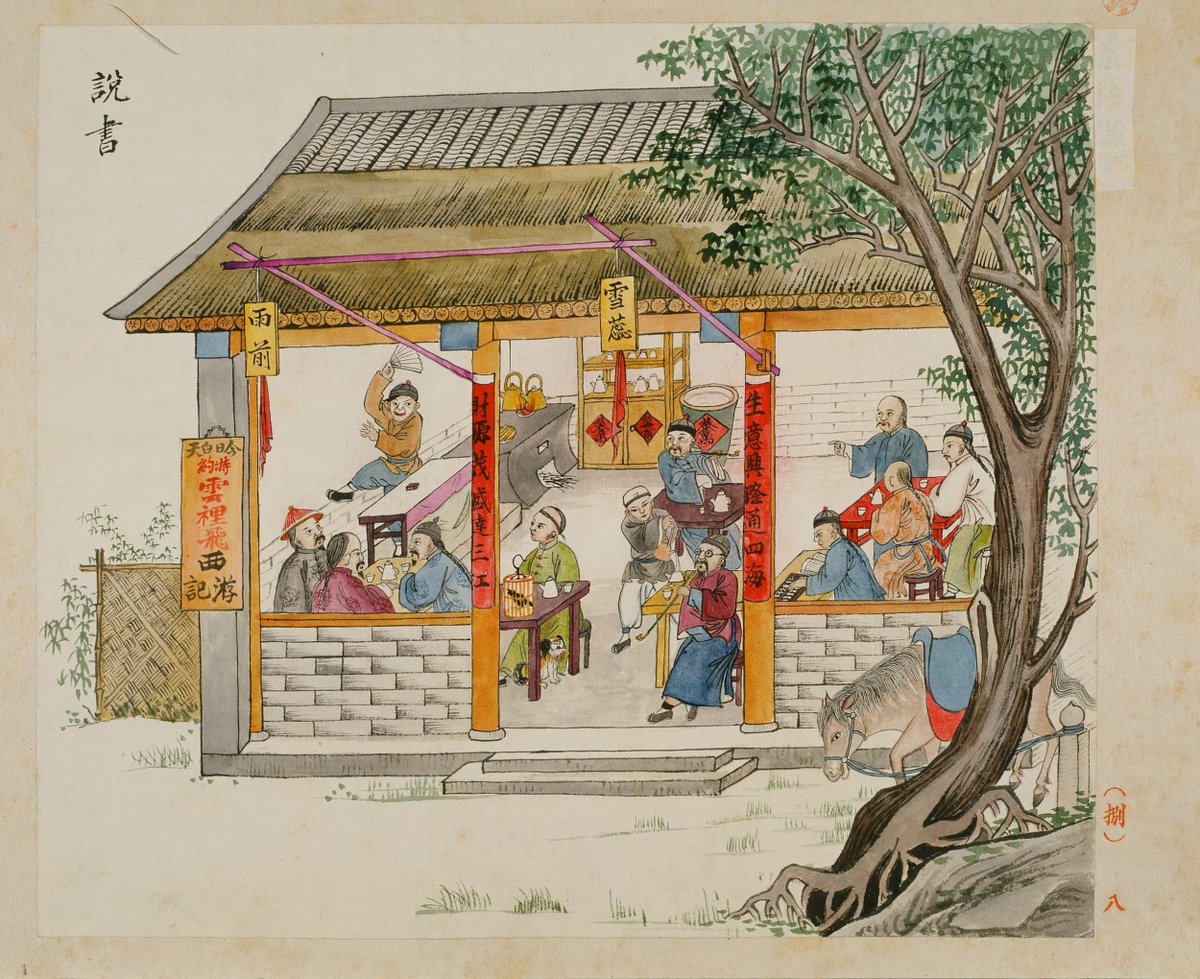 說書
生意興隆通四海
財源茂盛達三江
雪蕊
雨前
今日白天
特約
雲裡飛
西游記
(捌)
八